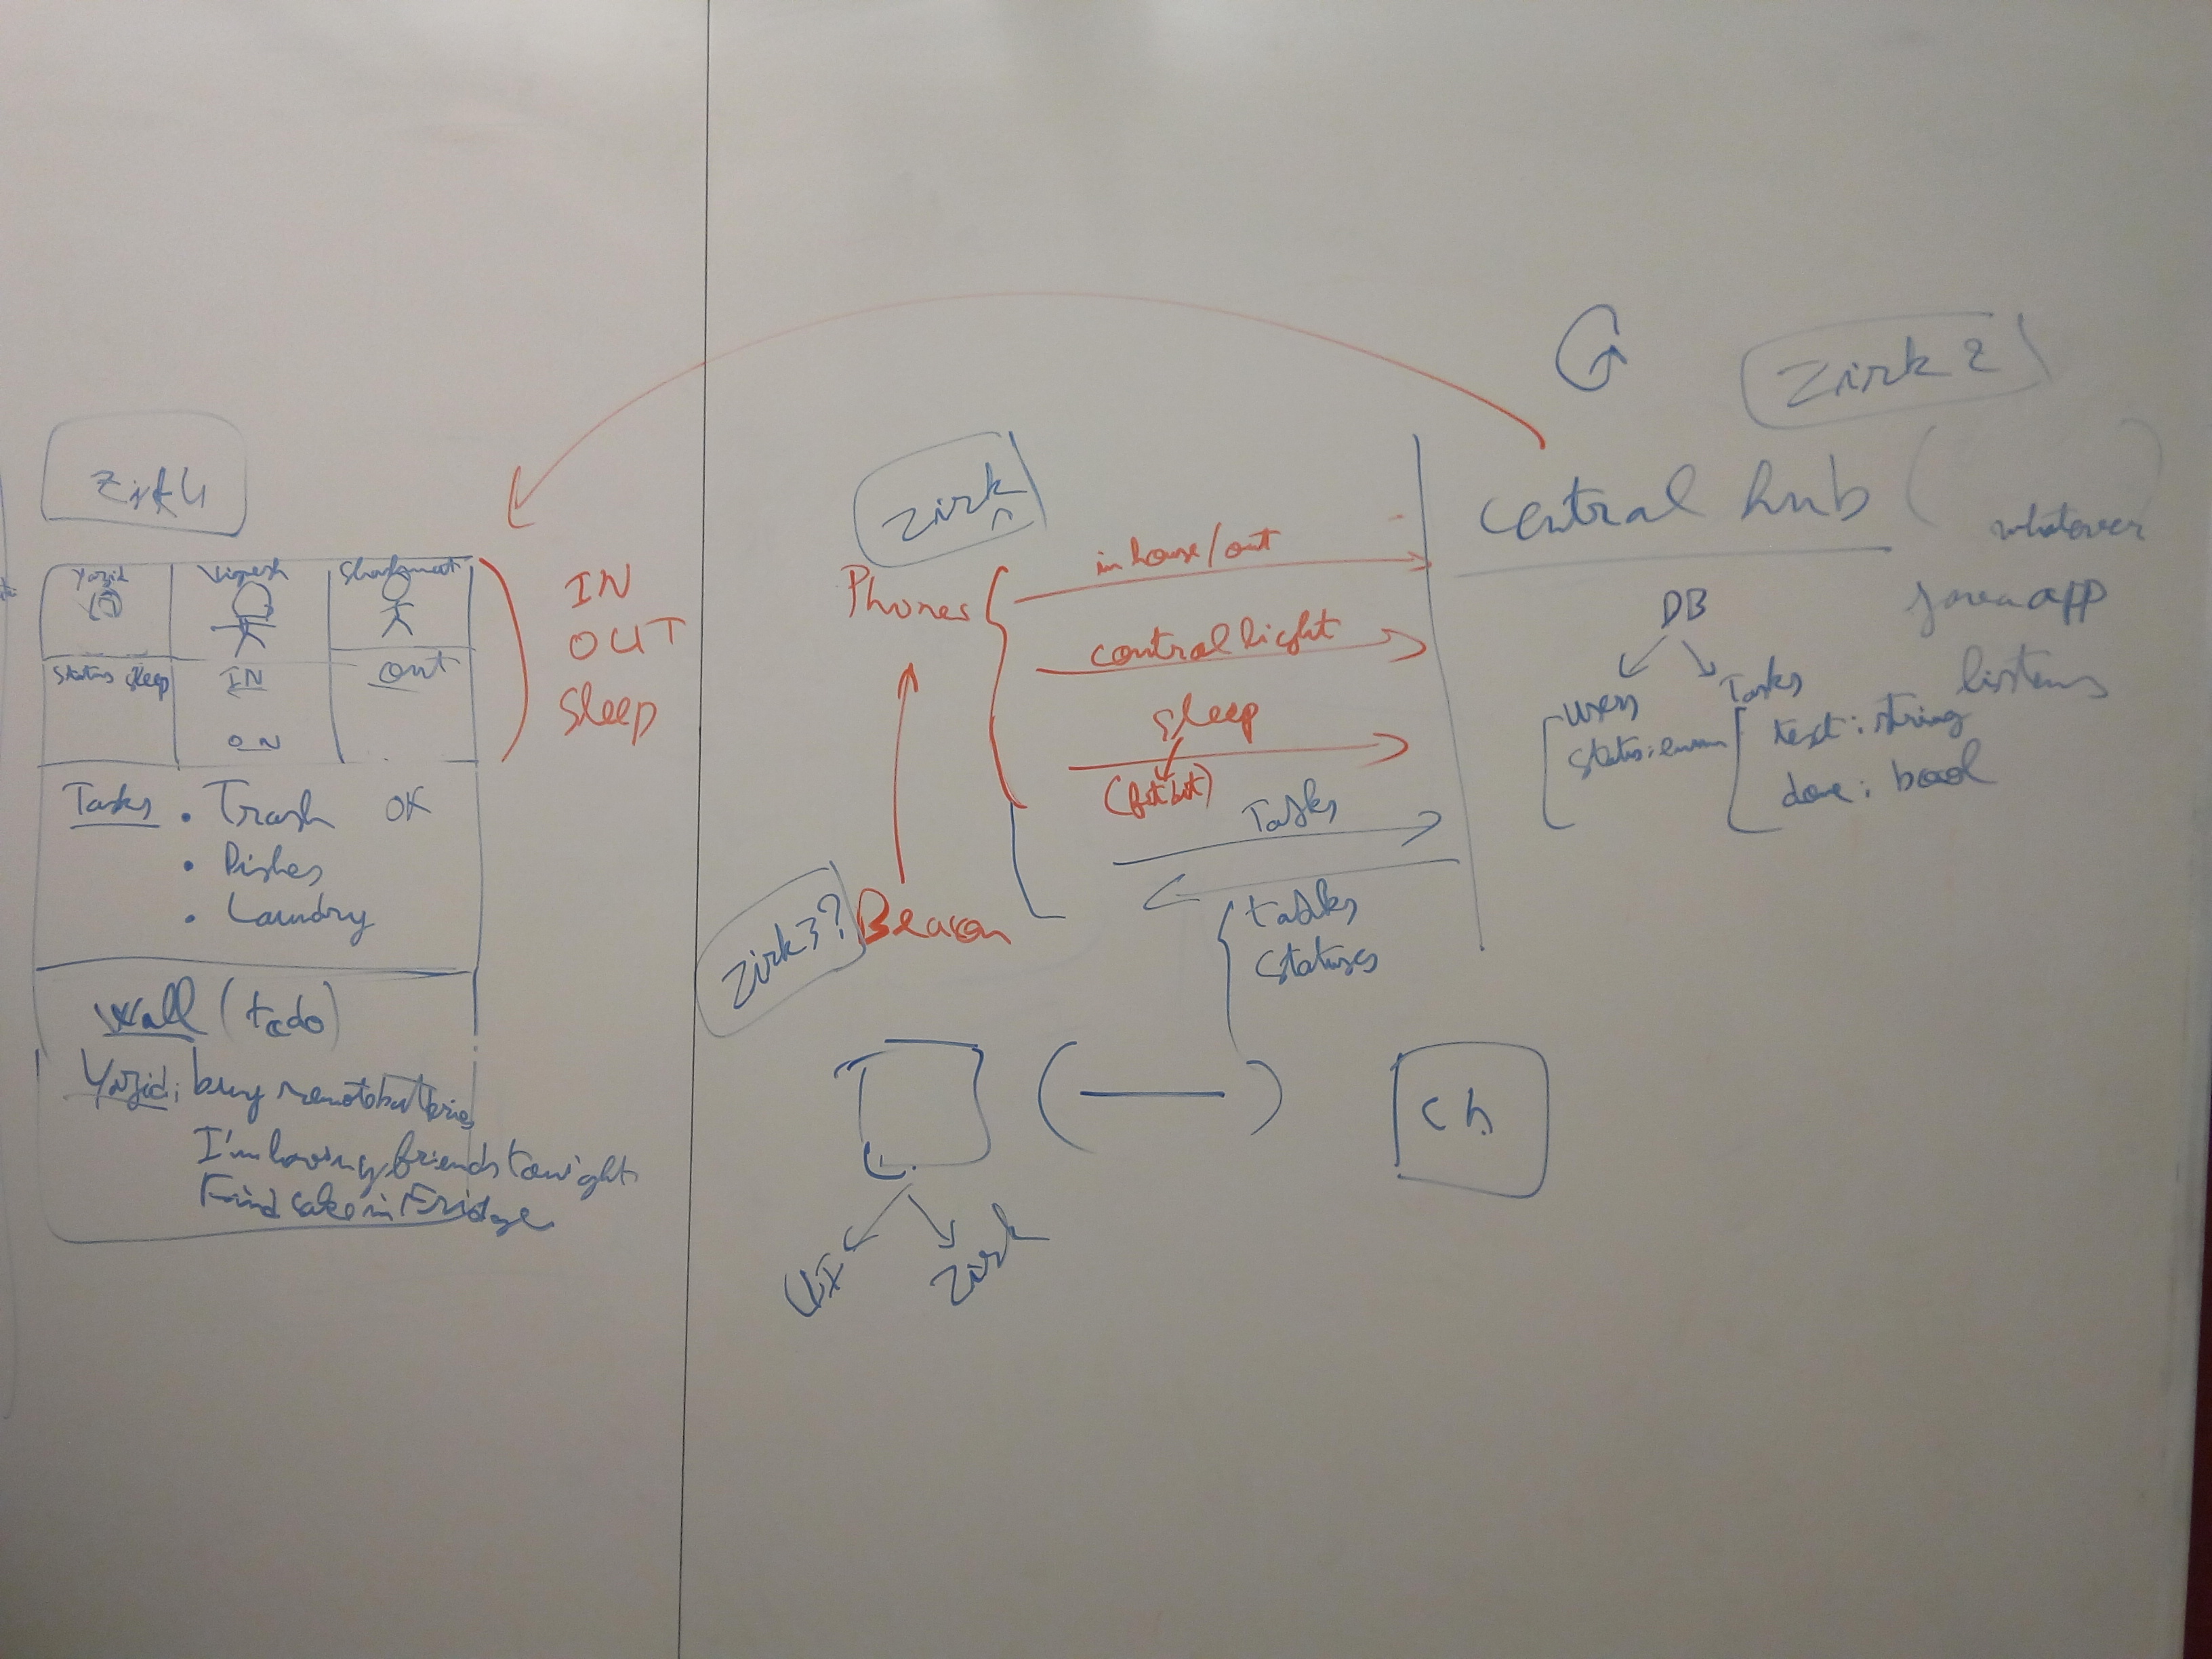 Zirk 4
Yazid
Vignesh
Status sleep
IN
out
ON
Tasks
• Trash OK
• Dishes
• Laundry
Wall (todo)
Yazid: buy remote batteries
I'm having friends tonight
Find cake in Fridge
IN
OUT
Sleep
Zirk
Phones
in house/out
control light
sleep
(fitbit)
Tasks
tasks
statuses
Zirk 3?
Beacon
UI
Zirk
Ch
Zirk 2
Central hub (
whatever
java app
listens
DB
Users
status: enum
Tasks
text: string
done: bool